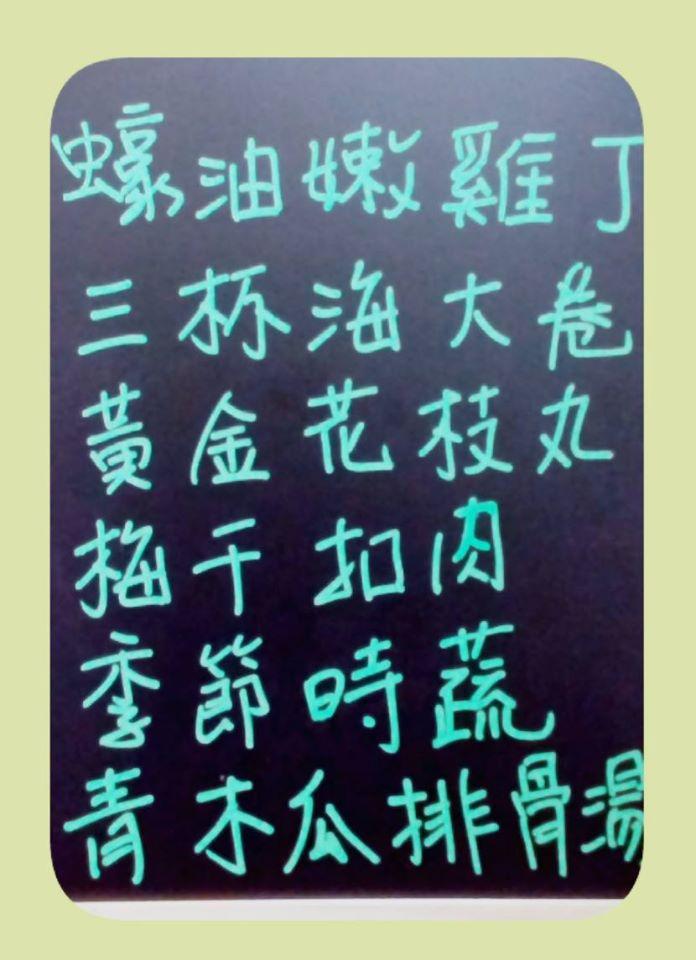 蠔油嫩雞丁
三杯海大卷
黃金花枝丸
梅干扣肉
季節時蔬
青木瓜排骨湯